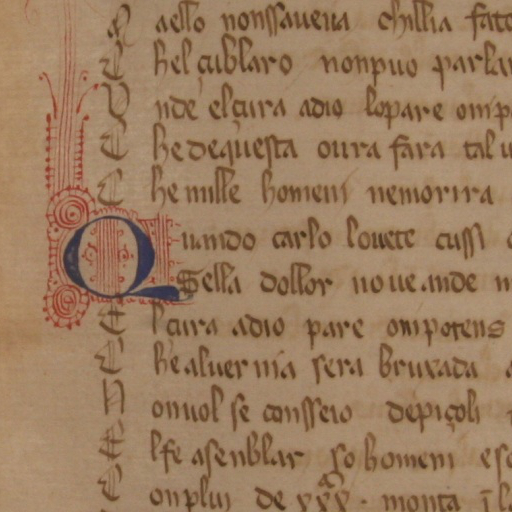 M aello nonssaveva chillia fato
C hel çublaro nonpuo parlar
V nde elçura adio lopare onip
C hedequesta oura fara tal u
C he mille homeni nemorira
Quando carlo lovete cussi
S ella dollor no ve ande
E lçura adio pare onipotens
C he aluernia sera bruxada
N onuol se consseio depiçoli
E lfe asenblar so homeni eso
C onplui de xxx · monta